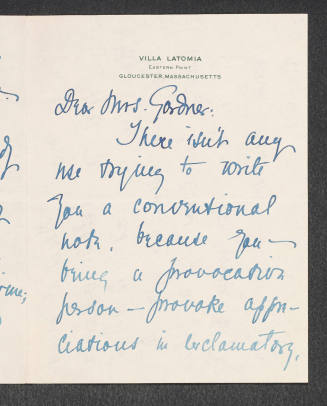 VILLA LATOMIA
EASTERN POINT
GLOUCESTER, MASSACHUSETTS
Dear Mrs. Gardner:
There isn't any
use trying to write
you a conventional
note, because you—
being a provocative
person — provoke appre-
ciations in exclamatory,